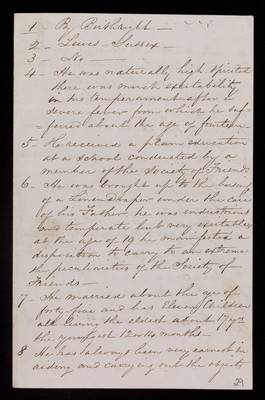 1 By Birthright –
2 – Lewes – Sussex –
3 – No –
4 – He was naturally high spirited
there was much excitability
in his temperament after a
severe fever from which he suf
= ferred about the age of fourteen –
5 – He received a plain education
at a school conducted by a
member of the Society of Friends
6 – He was brought up to the business
of a Linendraper under the care
of his Father he was industrious
and temperate but very excitable
at the age of 19 he manifested a
disposition to carry to an extreme
the peculiarities of the Society of
Friends –
7 – He married about the age of
forty-five and has Eleven Children
all living the eldest about 17 yrs
the youngest 12 or 14 months –
8 He has always been very earnest in
aiding and carrying out the objects
29